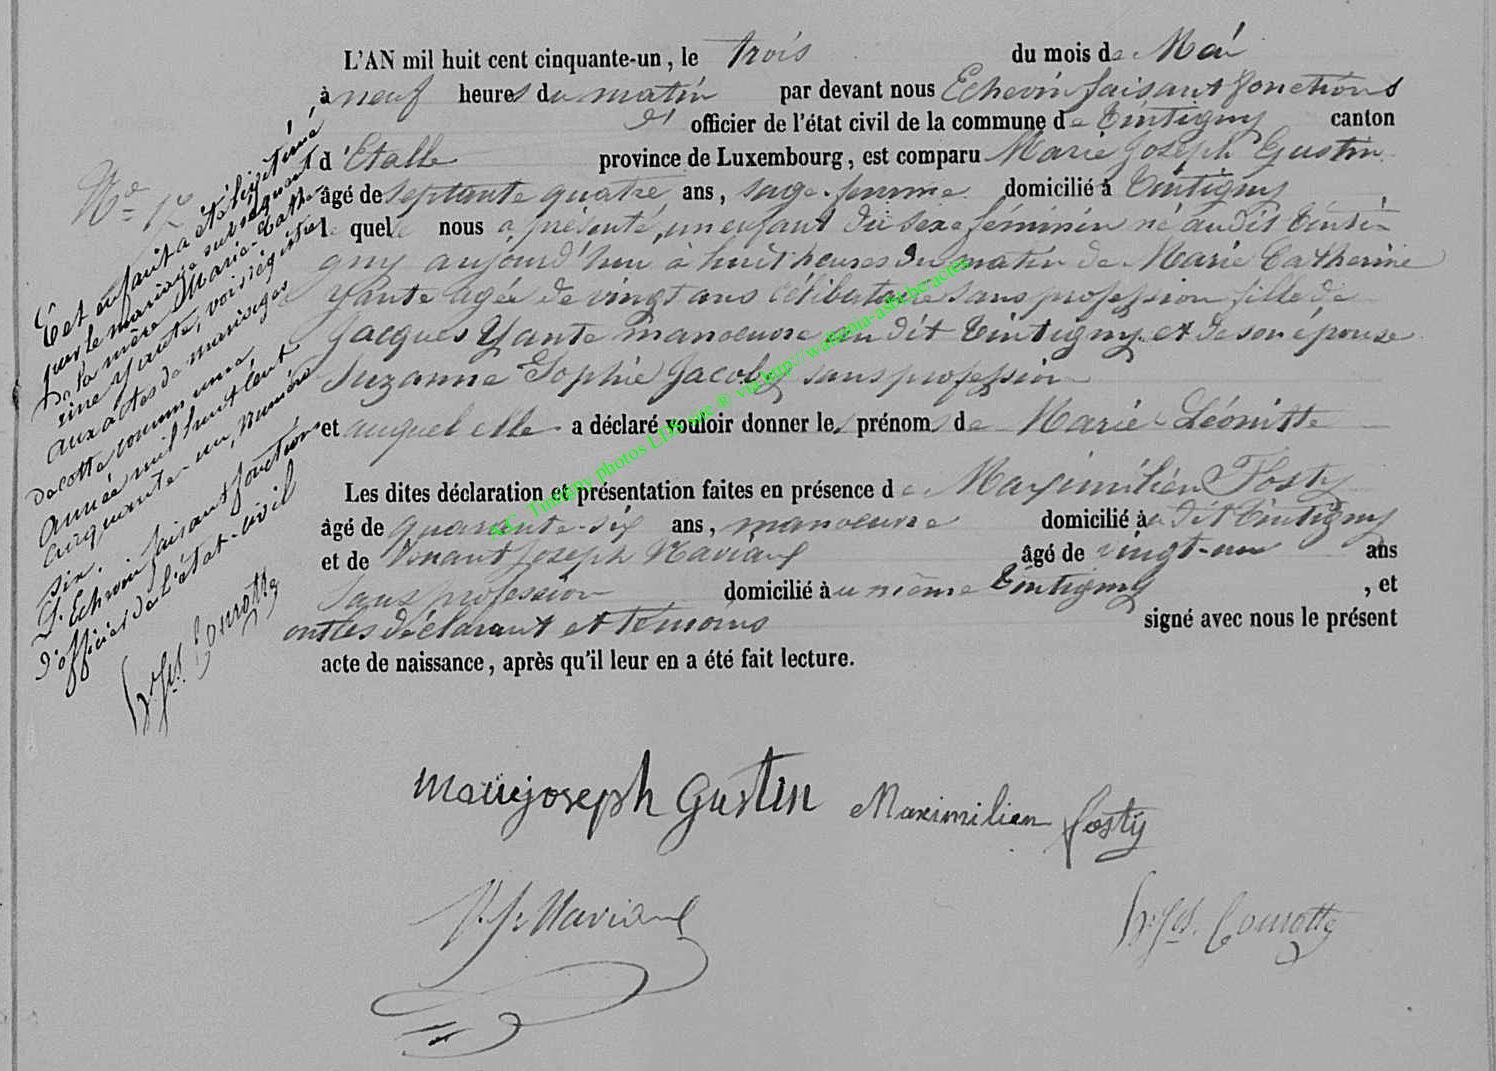 L'AN mil huit cent cinquante-un, le trois du mois de Mai
à neuf heures du matin par devant nous Echevin faisant fonctions
d' officier de l'état civil de la commune de Tintigny canton
d'Etalle province de Luxembourg, est comparu Marie Joseph Gustin
âgé de septante quatre ans, sage-femme domicilié à Tintigny
le quelle nous a présenté, un enfant du sexe féminin né audit Tinti-
gny aujourd'hui à huit heures du matin de Marie Catherine
Yante agée de vingt ans célibataire sans profession fille de
Jacques Yante manoeuvre au dit Tintigny et de son épouse
Suzanne Sophie Jacoby sans profession
et auquel elle a déclaré vouloir donner les prénoms de Marie-Léonitte
Les dites déclaration et présentation faites en présence de Maximilien Fosty
âgé de quarante-six ans, manoeuvre domicilié à dit Tintigny
et de Venant Joseph Naviaux âgé de vingt-un ans
sans profession domicilié à u même Tintigny, et
ont les déclarant et témoins signé avec nous le présent
acte de naissance, après qu'il leur en a été fait lecture.
N° 1
Cet enfant a été légitimé
par le mariage subséquent
de la mère Marie-Cathe-
rine Yante, voir régistre
aux actes de mariages
de cette commune
année mil huit cent
cinquante-un, numéro
six.
L'Echevin faisant fonctions
d'officier de l'état-civil
H. Jos. Connotte
marie joseph gustin Maximilien fosty
V. J. Naviaux
H. Jos. Connotte
A.C. Tintigny photos LDS site ® via http://wallonia-asbl.be/actes